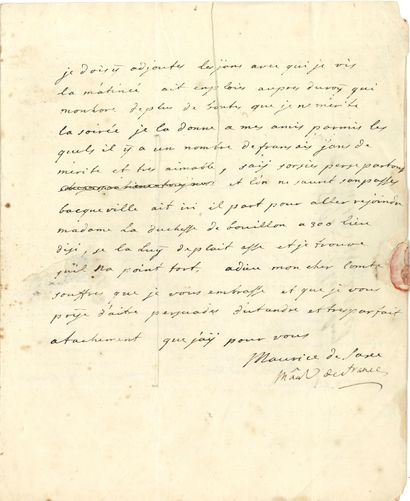 je doisÿ adjouter les jans avec qui je vis
la mâtinée ait emploiée aupres du roy qui
m'onhore de plus de bontes que je ne merite
la soirée je la donne a mes amis parmis les
quels il ÿ a un nombre de fransais jans de
mérite et tres aimable,
et l'on ne saurait sanpasser
bacqueville ait ici il part pour aller rejoindre
madame la duchesse de bouillon a 300 lieu
d'isi, se la luÿ deplait asse et je trouve
qu'il na point tort, adieu mon cher Comte
souffres que je vous embrasse et que je vous
prije d'aitre persuades du tandre et tres parfait
atachement que j'aÿ pour vous
Maurice de Saxe
Mâal de france